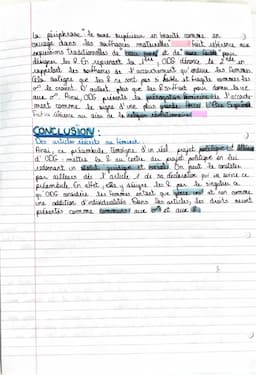 la périphrase "le sexe supérieur en beauté comme en
courage dans les souffrances maternelles" fait référence aux
expressions traditionnelles de "beau sexe" et de "sexe faible" pour
désigner les ♀. En reprenant la 1ère, ODG dénonce la 2nde en
rappelant les souffrances de l'accouchement qu'endure les femmes.
Elle souligne que les ♀ ne sont pas si faibles et fragiles comme les
♂ le croient. D'autant plus que les ♀ souffrent pour donner la vie
aux ♂. Ainsi, ODG présente la comme l'accouche-
ment comme le signe d'une plus grande force. L'Être Suprême
fait référence au sein de la religion révolutionnaire
CONCLUSION :
Des articles récrits au féminin.
Ainsi, ce préambule témoigne d'un réel projet politique
d'ODG : mettre la ♀ au centre du projet politique en lui
redonnant un statut juridique et sociale. On peut le constater
par ailleurs dès l'article 1 de sa déclaration qui va suivre ce
préambule. En effet, elle y désigne les ♀ par le singulier ce
qu'ODG considère les femmes entant que genre et non comme
une addition d'individualités. Dans les articles, les droits seront
présentés comme communs aux ♂ et aux ♀.